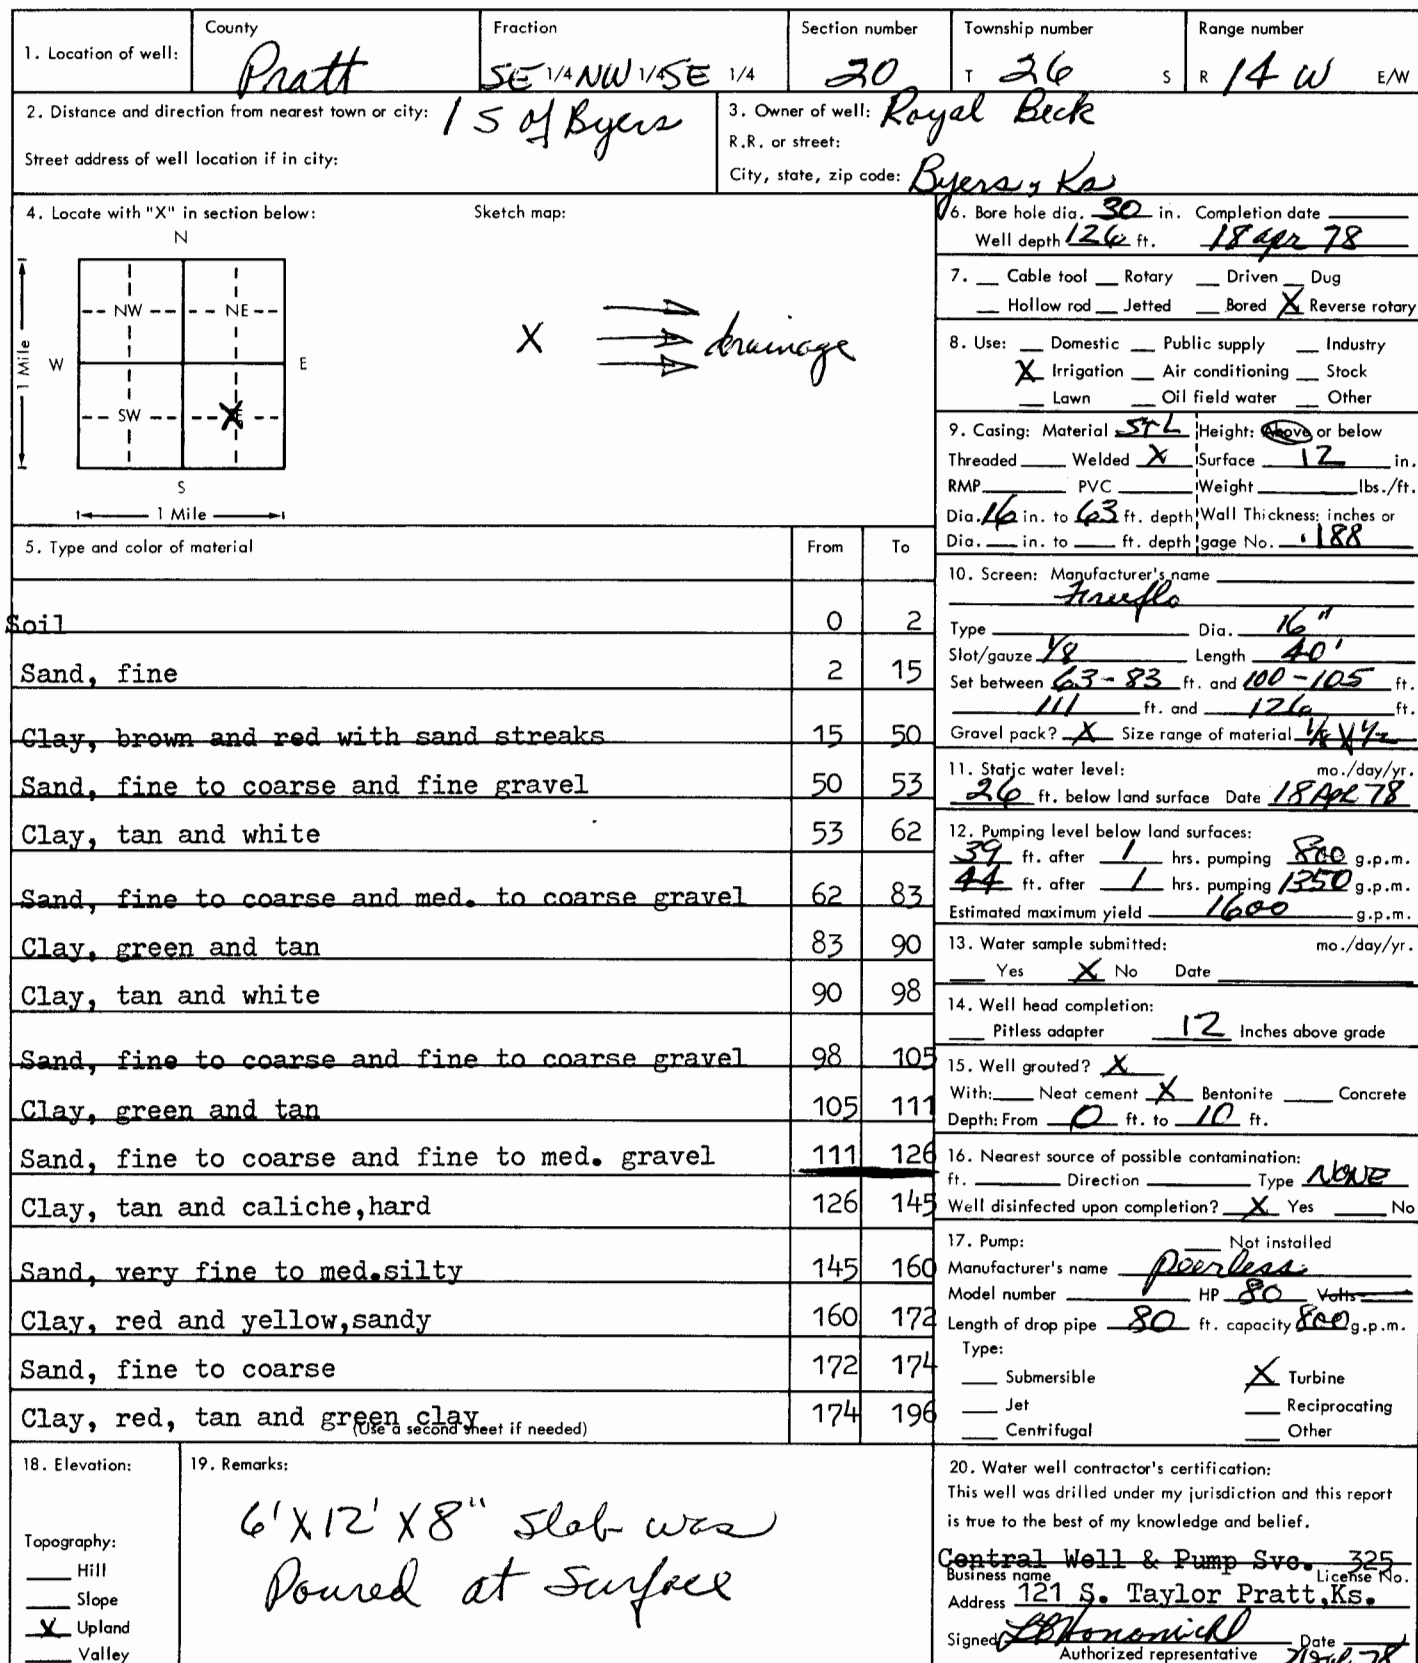 1. Location of well: County Pratt Fraction SE 1/4 NW 1/4 SE 1/4 Section number 20 Township number T 26 S Range number R 14 W E/W
2. Distance and direction from nearest town or city: 1 S of Byers
Street address of well location if in city:
3. Owner of well: Royal Beck
R.R. or street:
City, state, zip code: Byers, Ks
4. Locate with "X" in section below:
Sketch map:
N
NW NE
W E
SW X
S
1 Mile
1 Mile
X drainage
5. Type and color of material From To
Soil 0 2
Sand, fine 2 15
Clay, brown and red with sand streaks 15 50
Sand, fine to coarse and fine gravel 50 53
Clay, tan and white 53 62
Sand, fine to coarse and med. to coarse gravel 62 83
Clay, green and tan 83 90
Clay, tan and white 90 98
Sand, fine to coarse and fine to coarse gravel 98 105
Clay, green and tan 105 111
Sand, fine to coarse and fine to med. gravel 111 126
Clay, tan and caliche,hard 126 145
Sand, very fine to med.silty 145 160
Clay, red and yellow,sandy 160 172
Sand, fine to coarse 172 174
Clay, red, tan and green clay 174 196
(Use a second sheet if needed)
6. Bore hole dia. 30 in. Completion date
Well depth 126 ft. 18 apr 78
7. Cable tool Rotary Driven Dug
Hollow rod Jetted Bored X Reverse rotary
8. Use: Domestic Public supply Industry
X Irrigation Air conditioning Stock
Lawn Oil field water Other
9. Casing: Material STL Height: Above or below
Threaded Welded X Surface 12 in.
RMP PVC Weight lbs./ft.
Dia. 16 in. to 63 ft. depth Wall Thickness: inches or
Dia. in. to ft. depth gage No. .188
10. Screen: Manufacturer's name
Type Dia. 16"
Slot/gauze 1/8 Length 40'
Set between 63-83 ft. and 100-105 ft.
111 ft. and 126 ft.
Gravel pack? X Size range of material 1/8 X 1/2
11. Static water level: mo./day/yr.
26 ft. below land surface Date 18 Apr 78
12. Pumping level below land surfaces:
39 ft. after 1 hrs. pumping 800 g.p.m.
44 ft. after 1 hrs. pumping 1350 g.p.m.
Estimated maximum yield 1600 g.p.m.
13. Water sample submitted: mo./day/yr.
Yes X No Date
14. Well head completion:
Pitless adapter 12 Inches above grade
15. Well grouted? X
With: Neat cement X Bentonite Concrete
Depth: From 0 ft. to 10 ft.
16. Nearest source of possible contamination:
ft. Direction Type NONE
Well disinfected upon completion? X Yes No
17. Pump: Not installed
Manufacturer's name Peerless
Model number HP 80 Volts
Length of drop pipe 80 ft. capacity 800 g.p.m.
Type:
Submersible X Turbine
Jet Reciprocating
Centrifugal Other
18. Elevation:
Topography:
Hill
Slope
X Upland
Valley
19. Remarks:
6' X 12' X 8" Slab was
Poured at Surface
20. Water well contractor's certification:
This well was drilled under my jurisdiction and this report
is true to the best of my knowledge and belief.
Central Well & Pump Svc. 325
Business name License No.
Address 121 S. Taylor Pratt,Ks.
Signed Date
Authorized representative